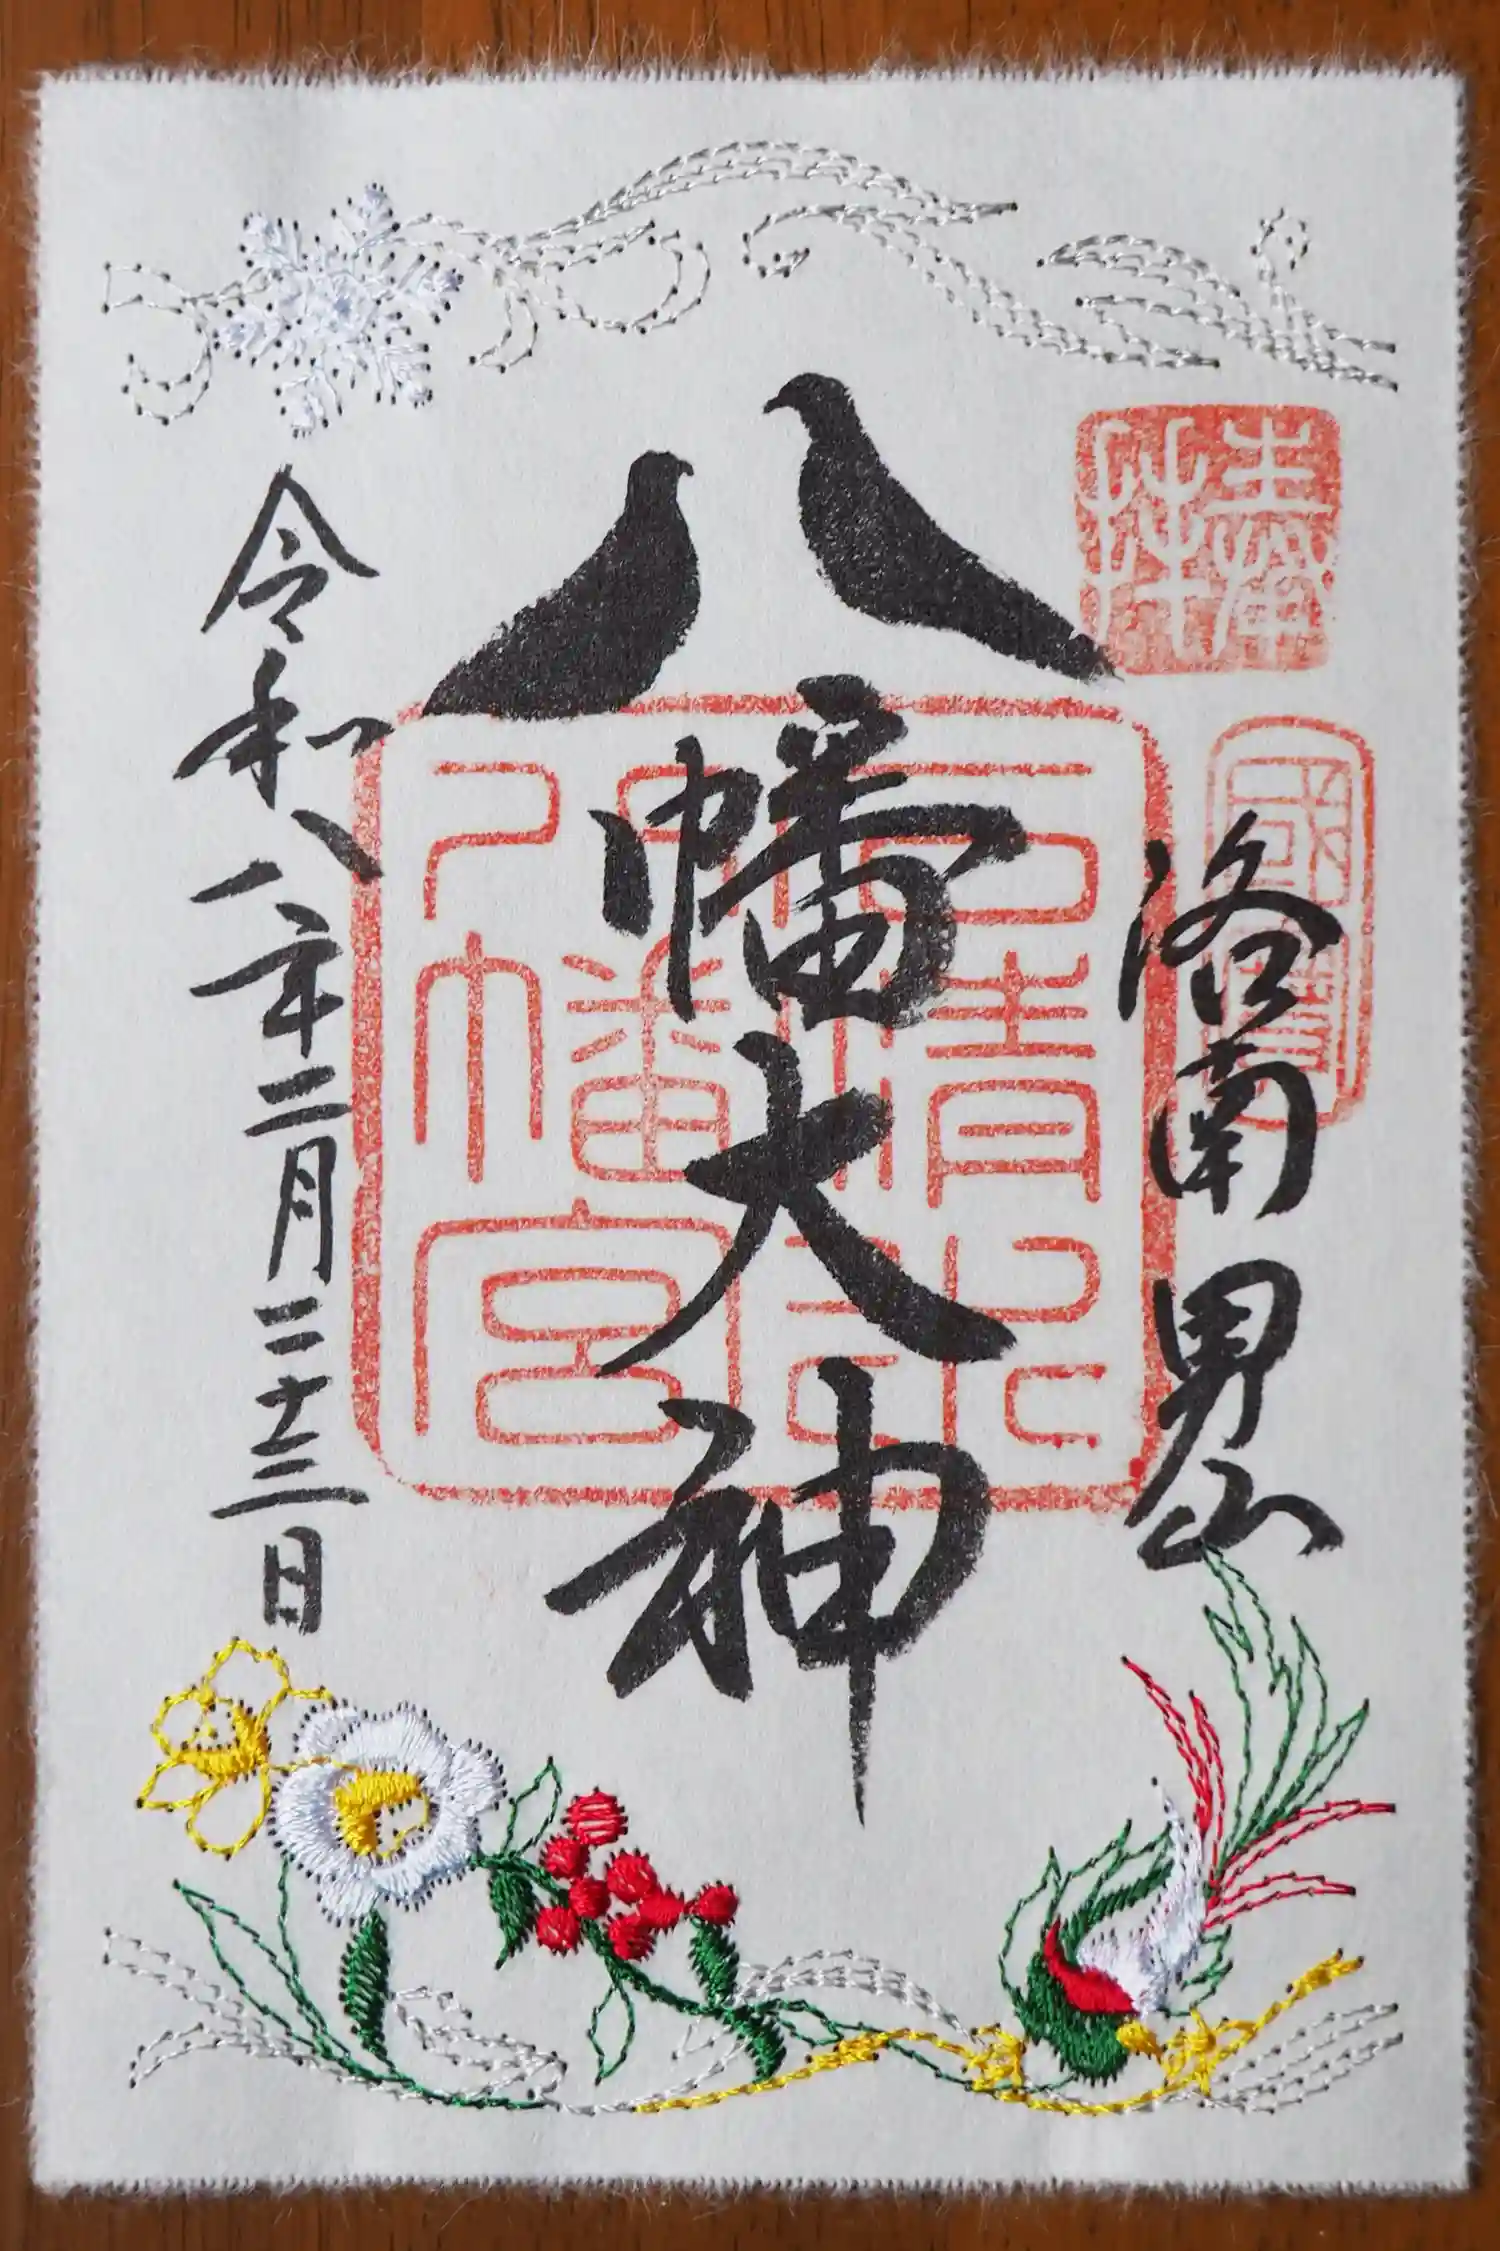 奉拝
國寶
洛南 男山
八幡大神
石清水
八幡宮
令和八年二月二十三日